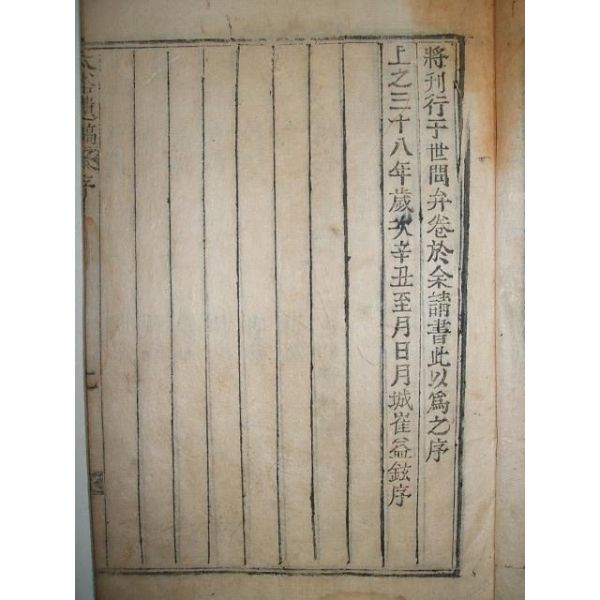 將刊行于世問弁卷於余請書此以爲之序
上之三十八年歲次辛丑至月日月城崔益鉉序
遺稿 序